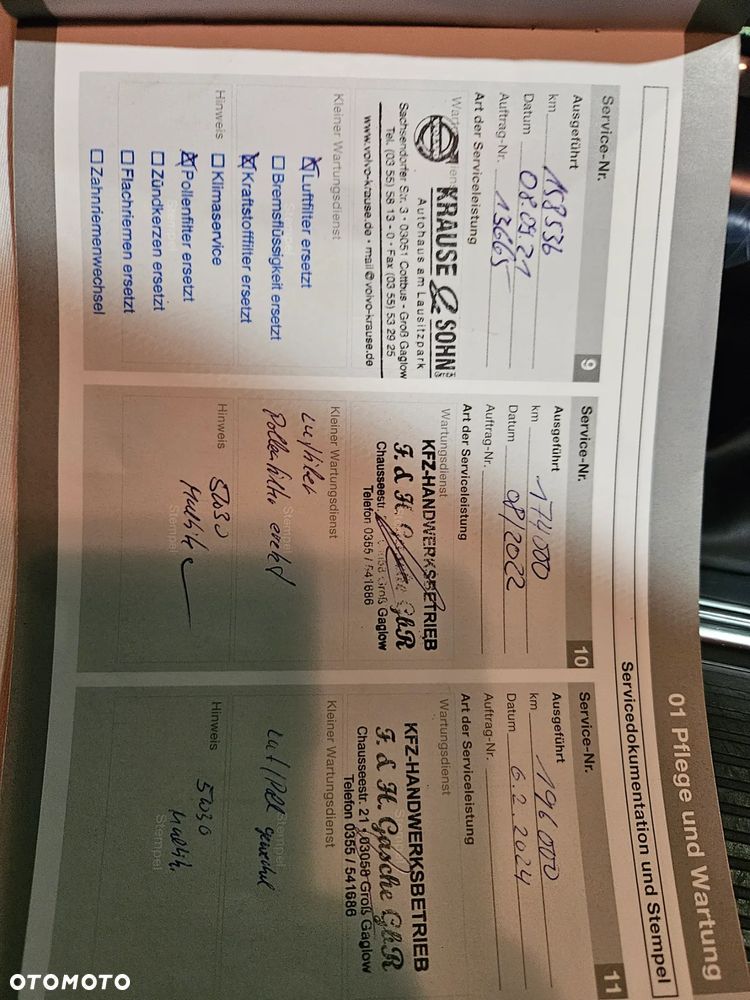 01 Pflege und Wartung
Servicedokumentation und Stempel
Service-Nr. 9
Ausgeführt
km 158536
Datum 08.09.21
Auftrag-Nr. 13665
Art der Serviceleistung
KRAUSE & SOHN
Autohaus am Lausitzpark
Sachsendorfer Str. 3 · 03051 Cottbus - Groß Gaglow
Tel. (03 55) 58 13 - 0 · Fax (03 55) 53 29 25
www.volvo-krause.de · mail@volvo-krause.de
Kleiner Wartungsdienst
Luftfilter ersetzt
Bremsflüssigkeit ersetzt
Kraftstofffilter ersetzt
Hinweis
Klimaservice
Pollenfilter ersetzt
Zündkerzen ersetzt
Flachriemen ersetzt
Zahnriemenwechsel
Service-Nr. 10
Ausgeführt
km 174000
Datum 08/2022
Auftrag-Nr.
Art der Serviceleistung
Wartungsdienst
KFZ-HANDWERKSBETRIEB
F. & H. GbR
Chausseestr. Groß Gaglow
Telefon 0355 / 541686
Kleiner Wartungsdienst
Luftfilter
Pollenfilter
Stempel
Hinweis
5W30
Stempel
Service-Nr. 11
Ausgeführt
km 196000
Datum 6.2.2024
Auftrag-Nr.
Art der Serviceleistung
Wartungsdienst
KFZ-HANDWERKSBETRIEB
F. & H. Gasche GbR
Chausseestr. 21, 03058 Groß Gaglow
Telefon 0355 / 541686
Kleiner Wartungsdienst
Stempel
Hinweis
5W30
Stempel
OTOMOTO